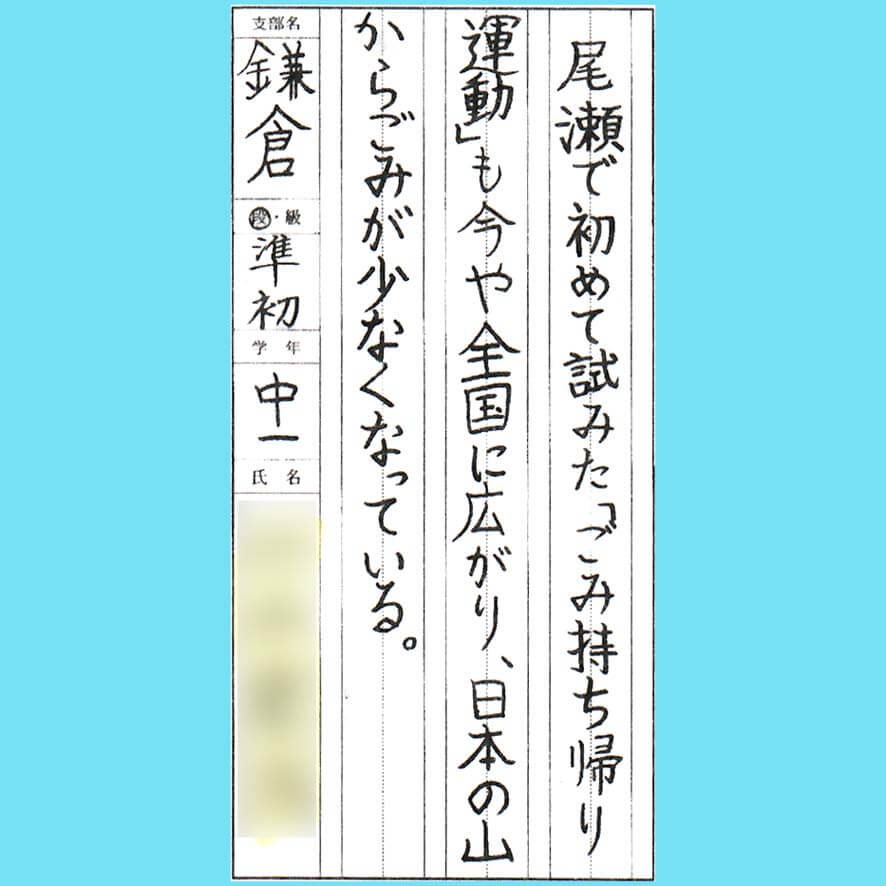 尾瀬で初めて試みた「ごみ持ち帰り
運動」も今や全国に広がり、日本の山
からごみが少なくなっている。
支部名
鎌倉
段・級
準初
学年
中一
氏名